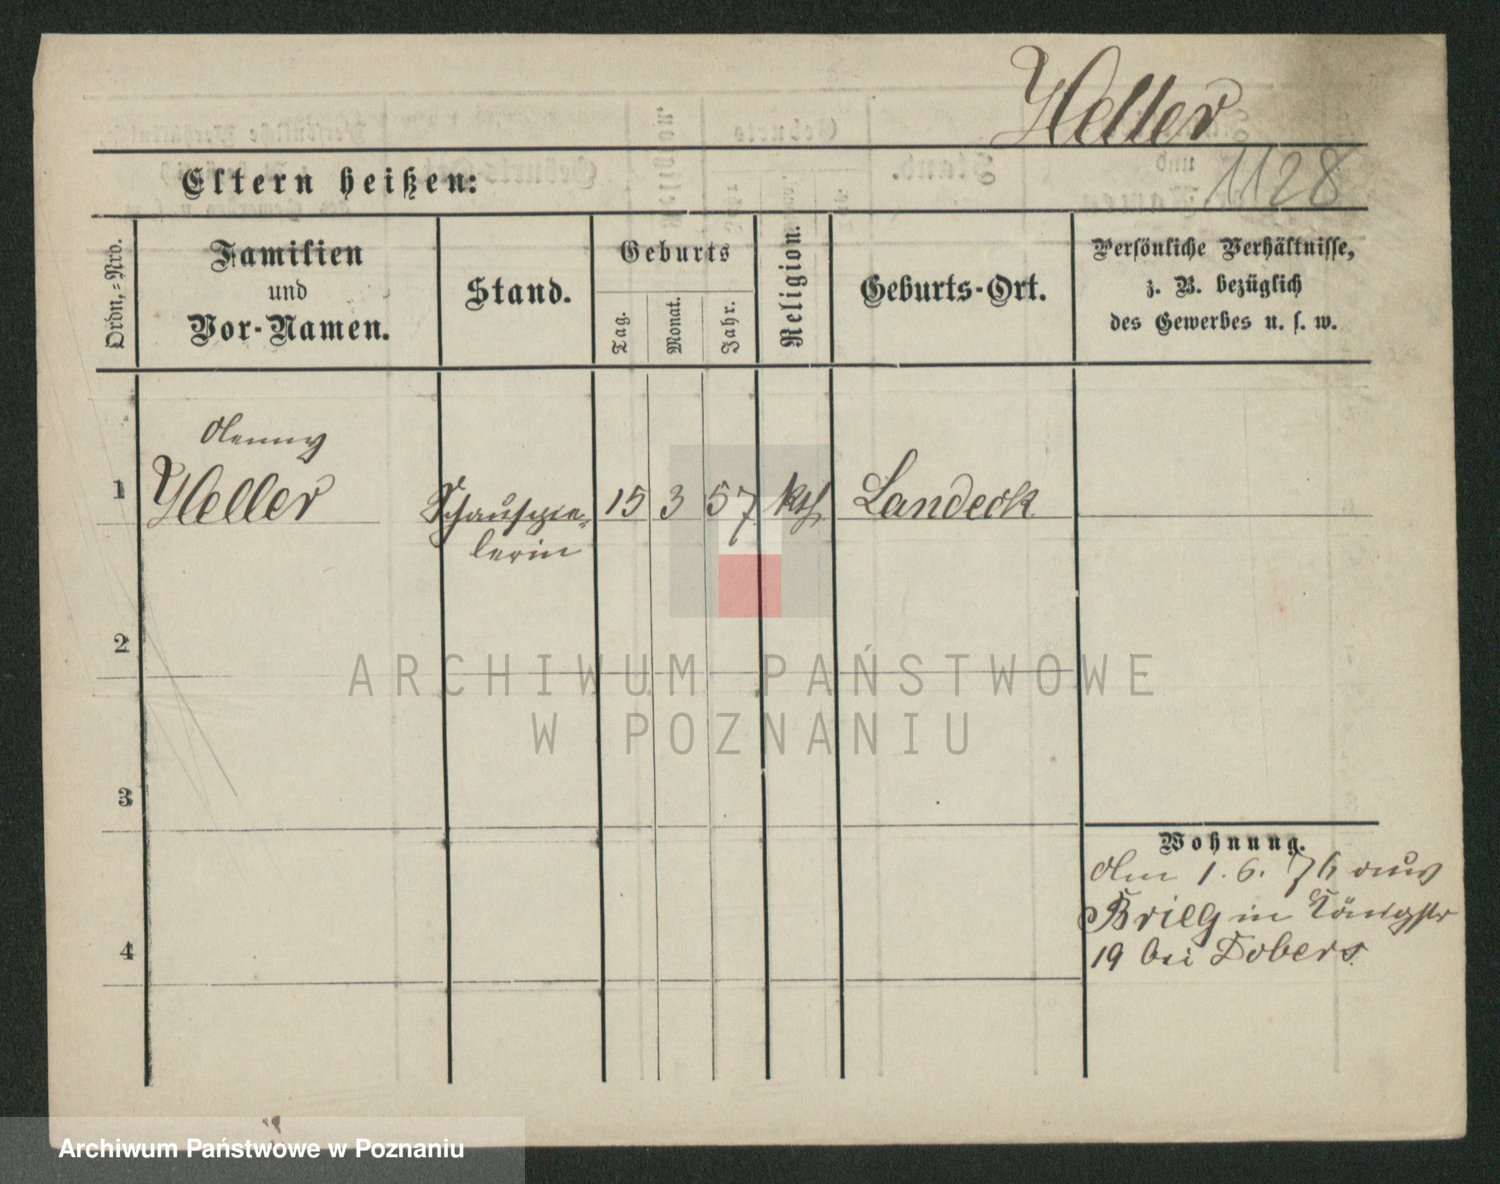 Heller
1128
Eltern heißen:
Ordn.=Nro.
Familien
und
Vor-Namen.
Stand.
Geburts
Tag.
Monat.
Jahr.
Religion.
Geburts-Ort.
Persönliche Verhältnisse,
z. B. bezüglich
des Gewerbes u. s. w.
1
Heller
Schauspie-
lerin
15
3
57
kth
Landeck
2
3
4
Wohnung.
Am 1. 6. 76 aus
Brieg in Königstr
19 bei Dobers
ARCHIWUM PAŃSTWOWE
W POZNANIU
Archiwum Państwowe w Poznaniu